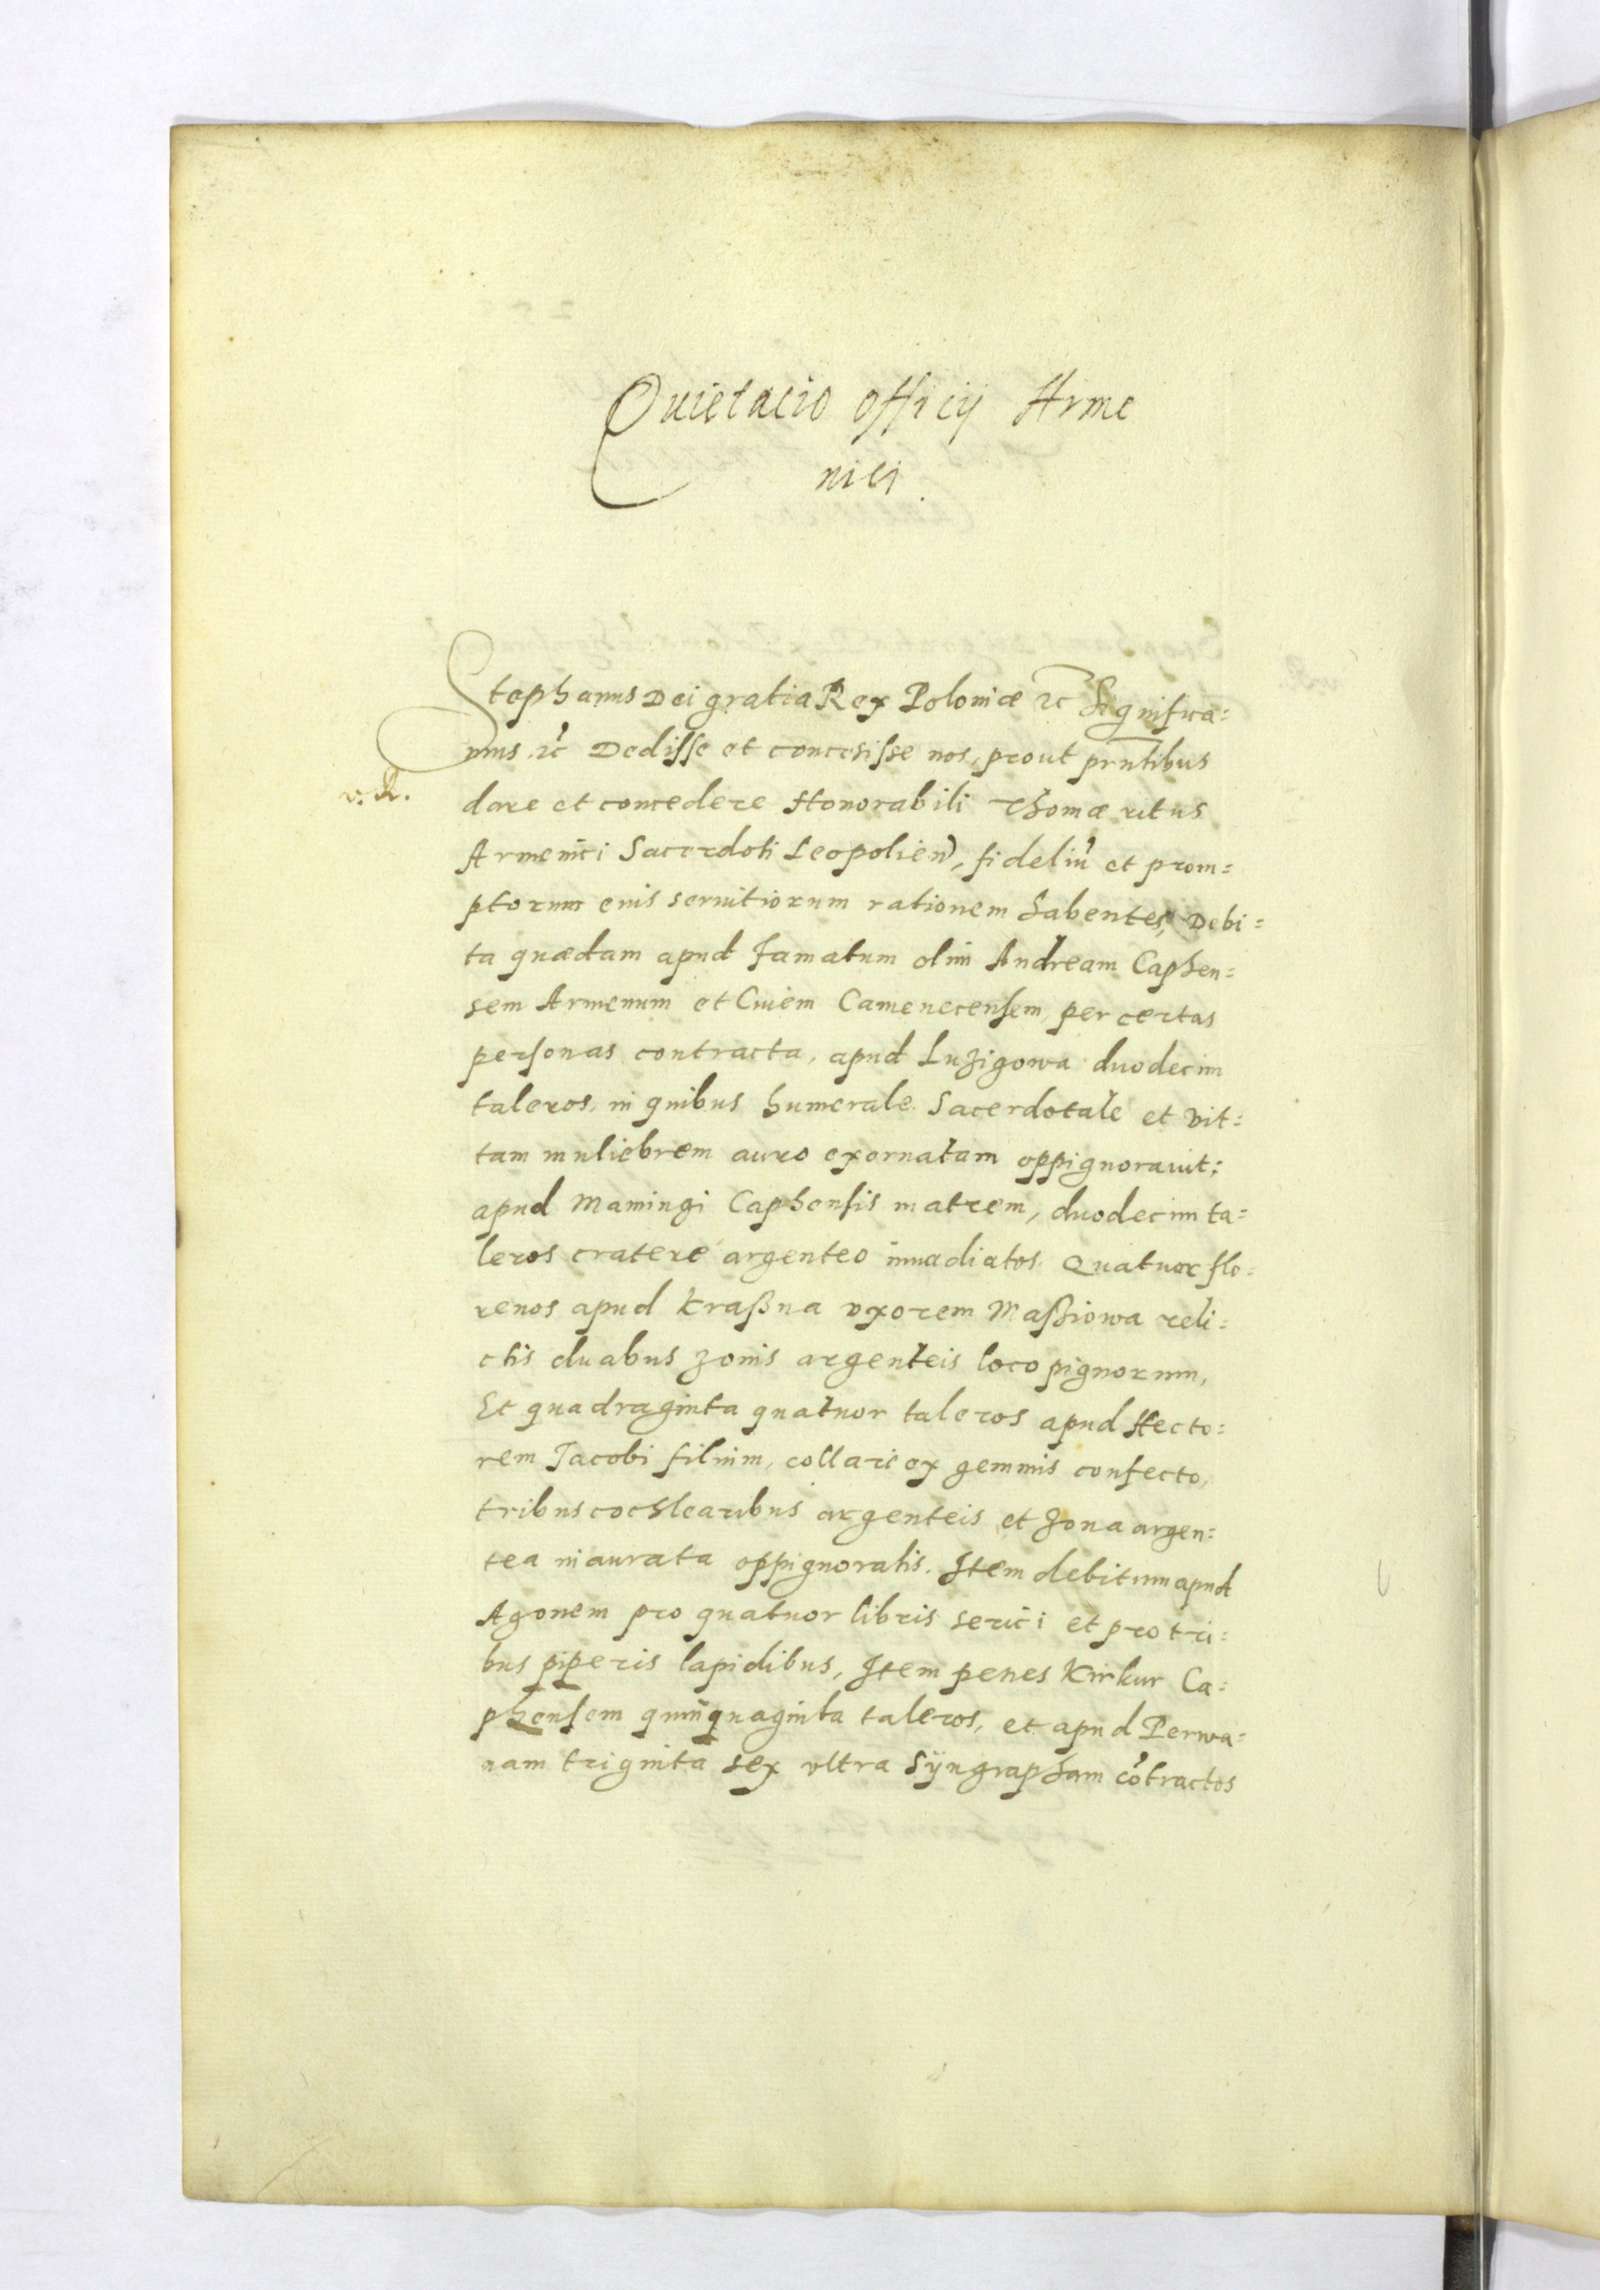 Quietacio officij Arme
nici
Stephanus Dei gratia Rex Poloniæ etc Significa=
mus etc Dedisse et concesisse nos, prout prntibus
v. R.
dare et concedere Honorabili Thomæ ritus
Armenici Sacerdoti Leopolien, fideliu et prom=
ptorum eius seruitiorum rationem habentes, Debi=
ta quædam apud famatum olim Andream Caphen=
sem Armenum et Ciuem Camenecensem, per certas
personas contracta, apud Luzigowa duodecim
taleros, in quibus humerale Sacerdotale et vit=
tam muliebrem auro exornatam oppignorauit;
apud Mamingi Caphensis matrem, duodecim ta=
leros cratere argenteo inuadiatos. Quatuor flo=
renos apud Kraßna vxorem Maßiowa reli=
ctis duabus zonis argenteis loco pignorum,
Et quadraginta quatuor taleros apud Hecto=
rem Jacobi filium, collari ex gemmis confecto,
tribus cochlearibus argenteis et zona argen=
tea inaurata oppignoratis. Item debitum apud
Agonem pro quatuor libris serici et pro tri=
bus piperis lapidibus, Item penes Kirkur Ca=
phensem quinquaginta taleros, et apud Perwa=
nam triginta sex vltra Syngrapham cotractos